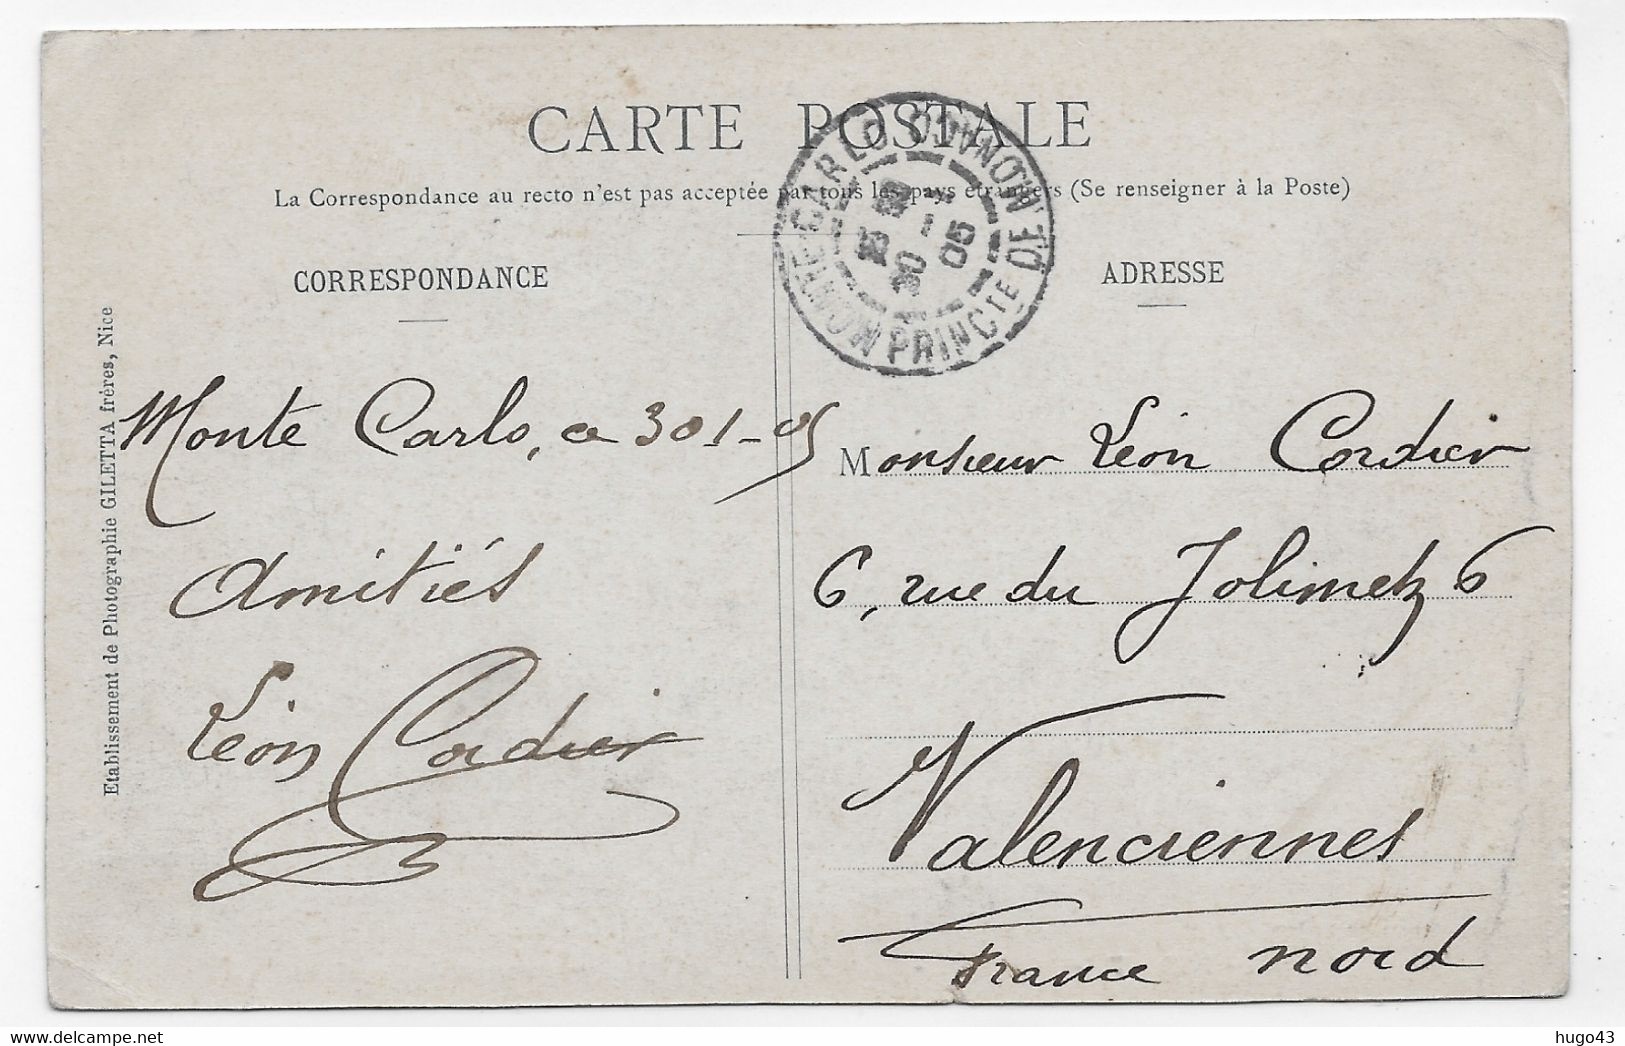 CARTE POSTALE
La Correspondance au recto n'est pas acceptée par tous les pays étrangers (Se renseigner à la Poste)
MONTE-CARLO
PRINCTE DE MONACO
30 -1 05
CORRESPONDANCE
Monte Carlo, ce 30 1-05
Amitiés
Léon Cordier
Etablissement de Photographie GILETTA frères, Nice
ADRESSE
Monsieur Léon Cordier
6, rue du Jolimetz 6
Valenciennes
France nord
hugo43